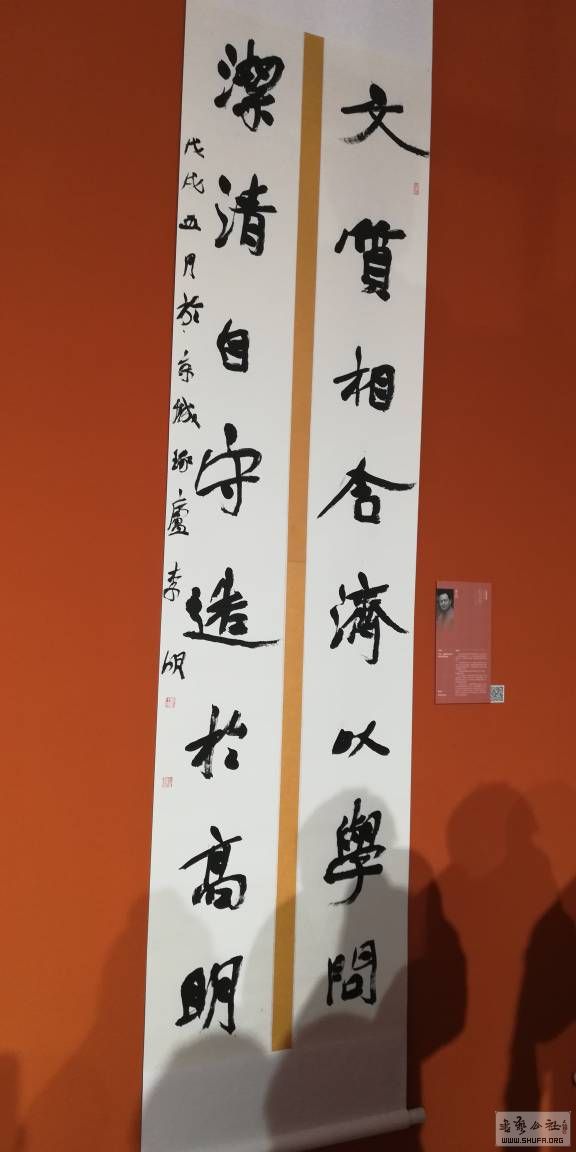 文質相含濟以學問
潔清自守造於高明
戊戌五月於京城琢廬李明
書藝公社
WWW.SHUFA.ORG